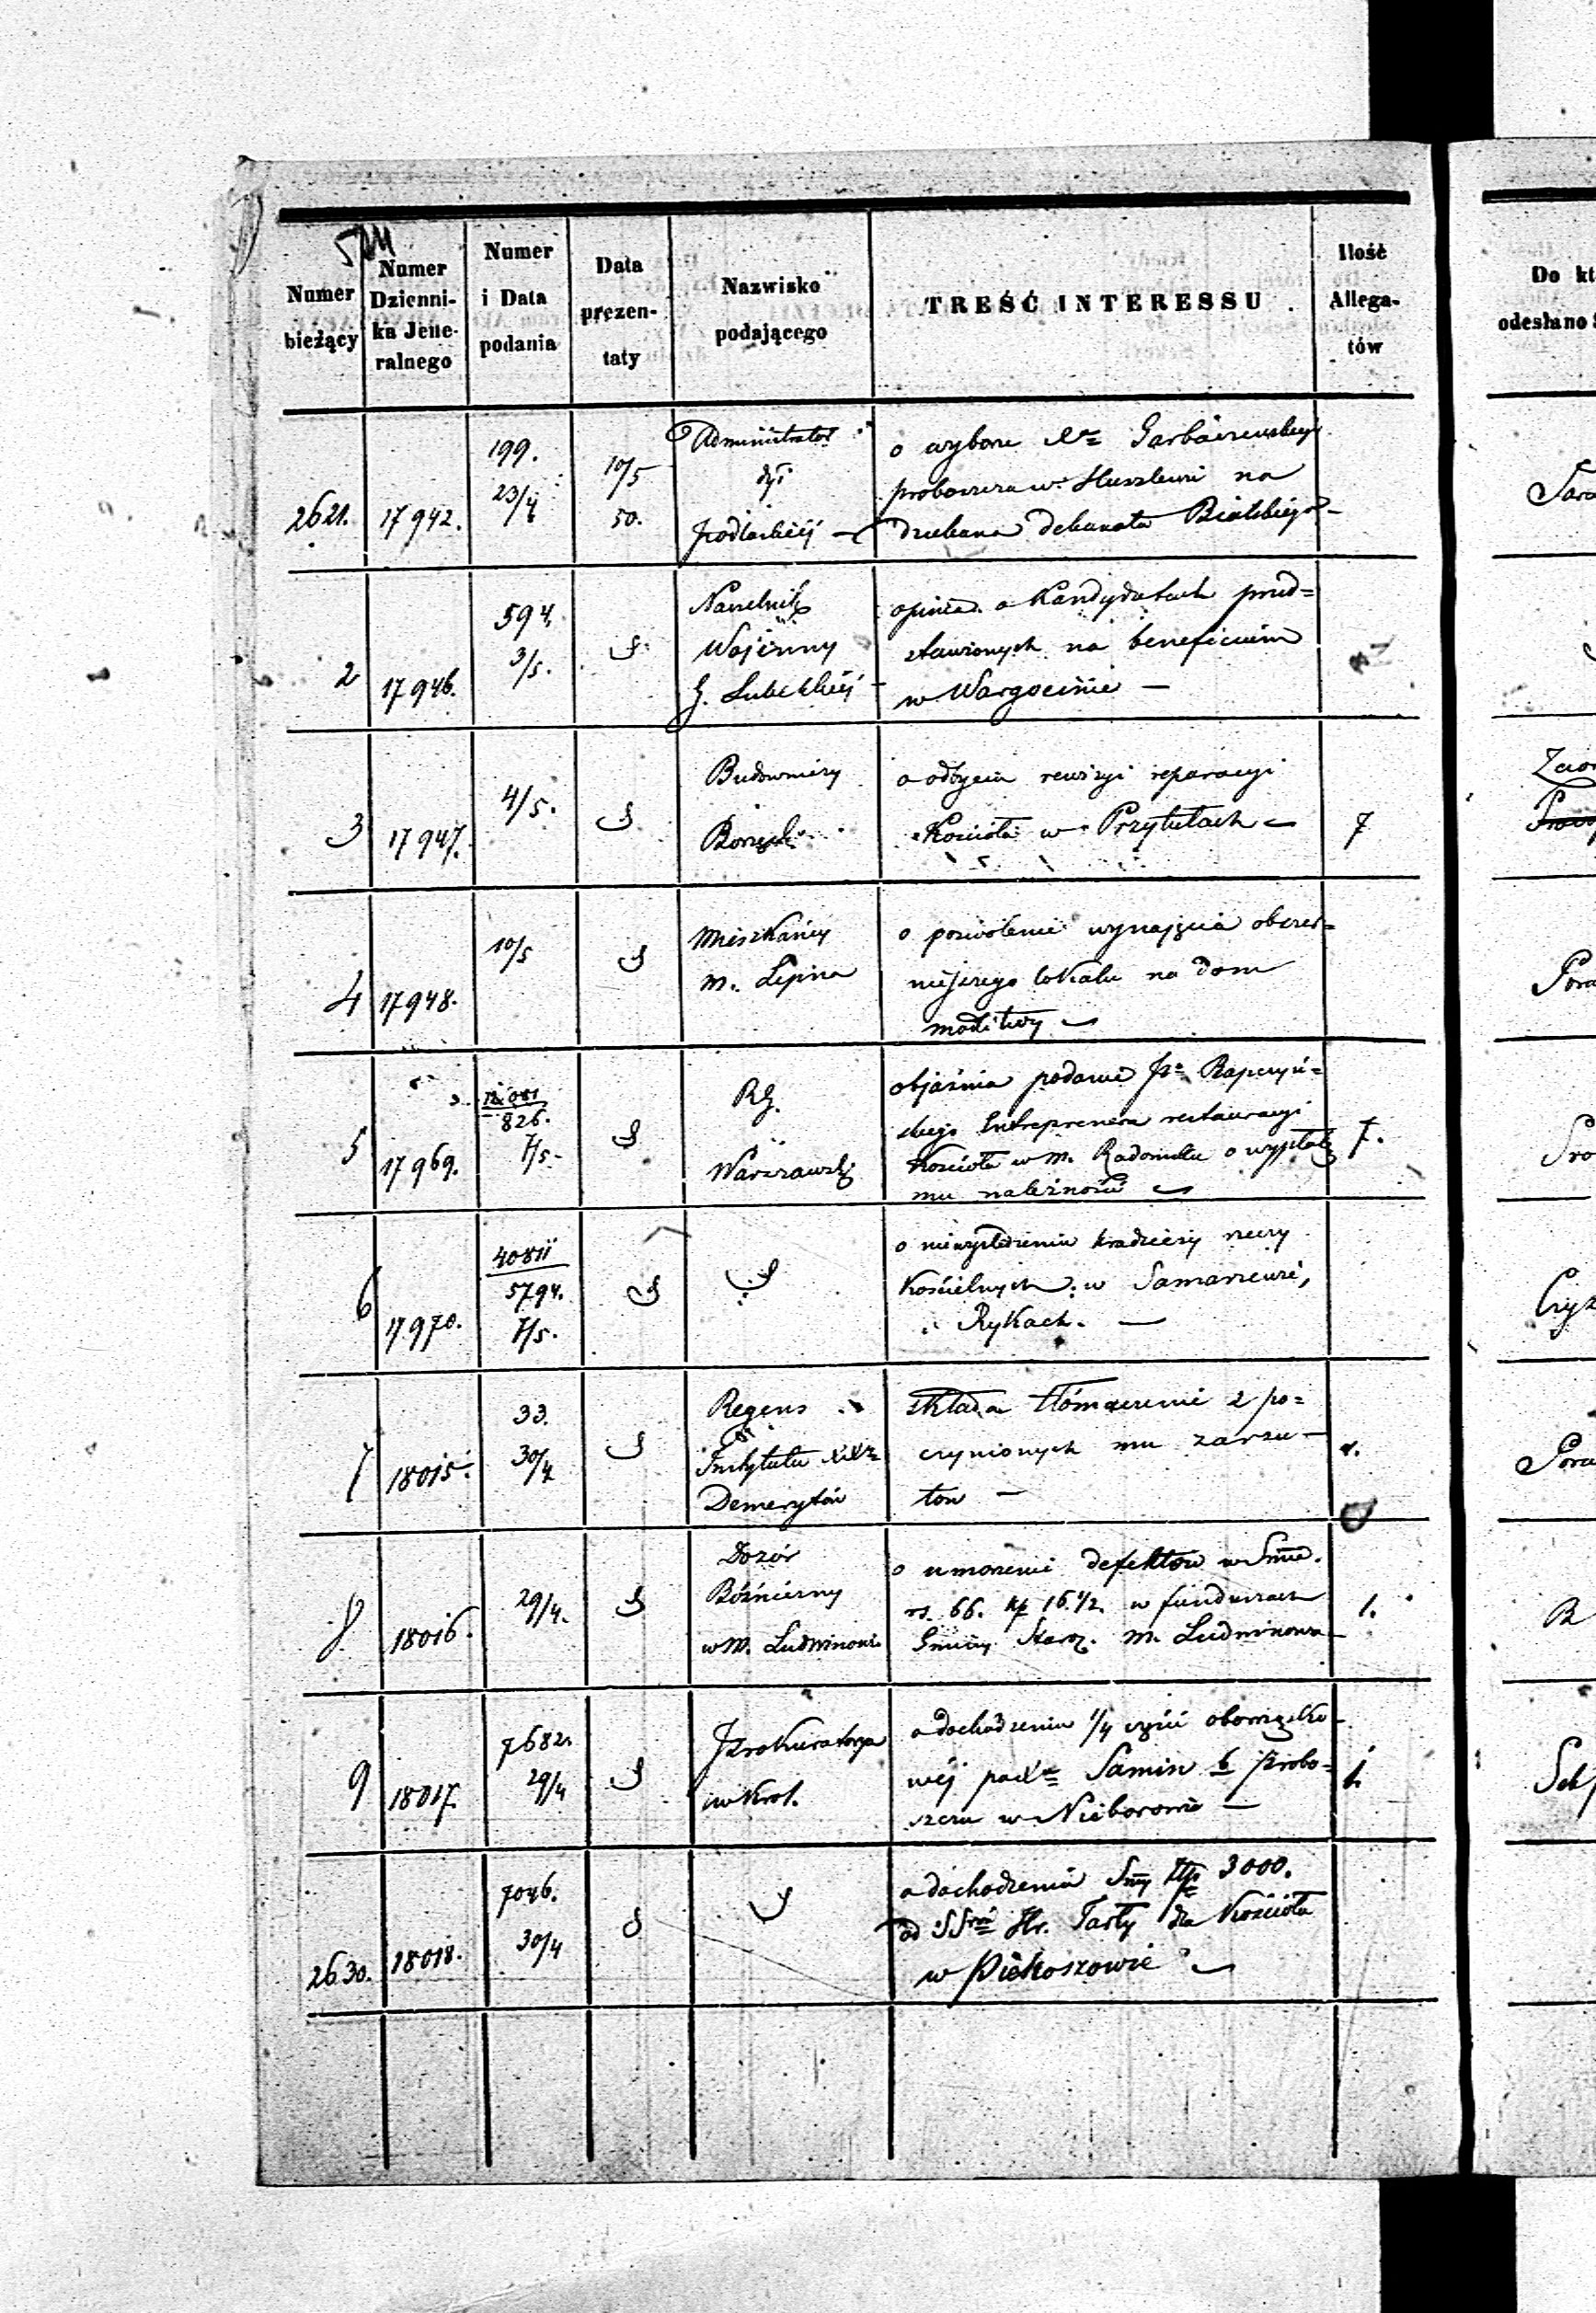 Numer bieżący
Numer Dzienni-ka Jene-ralnego
Numer i Data podania
Data prezen-taty
Nazwisko podającego
TREŚĆ INTERESSU
Ilość Allega-tów
Do kt
odesłano
2621.
17942.
199.
23/4
10/5
50.
Administrator
dyi
podlaskiéj
o wyborze
proboszcza w Huszlewie na
dziekana dekanatu Bialskiego
2
17946.
594.
3/5.
Naczelnik
Wojenny
G. Lubelskiéj
opinia o Kandydatach przed=
stawionych na beneficium
w Wargocinie —
3
17947.
4/5.
Budowniczy
o odbyciu rewizyi reparacyi
Kościoła w Przytułach
7
4
17948.
10/5
Mieszkańcy
m. Lipna
o pozwolenie wynajęcia obszer=
niejszego lokalu na dom
modlitwy
5
17969.
826.
7/5.
RG.
Warszawski
objaśnia podanie
skiego Entreprenera restauracyi
Kościoła w m. Radomsku o wypłatę
mu należności
7.
6
17970.
40811
5794.
7/5.
o niewyśledzeniu kradzieży rzeczy
Kościelnych w
Rykach. —
7
18015.
33.
30/4
Regens
Instytutu XX
Demerytów
składa tłómaczenie z po=
czynionych mu zarzu-
tów —
8
18016.
29/4.
Dozór
Bóźniczny
w M. Ludwinowie
o umorzenie defektów w Smie.
rs. 66. kp 16.1/2. w funduszach
Gminy Staroz. m. Ludwinowa
1.
9
18017.
7682.
29/4
Prokuratorya
w Król.
o dochodzeniu 1/4 części obowiązko-
wéj po Samin b probo=
szczu w Nieborowie —
1.
2630.
18018.
7046.
30/4
o dochodzeniu Smy złp 3000.
od Hr. Tarły dla Kościoła
w Piekoszowie